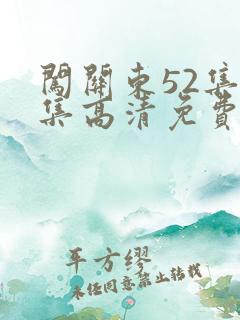 闖關東52集
集高清免費
平方繆
未經同意禁止轉載